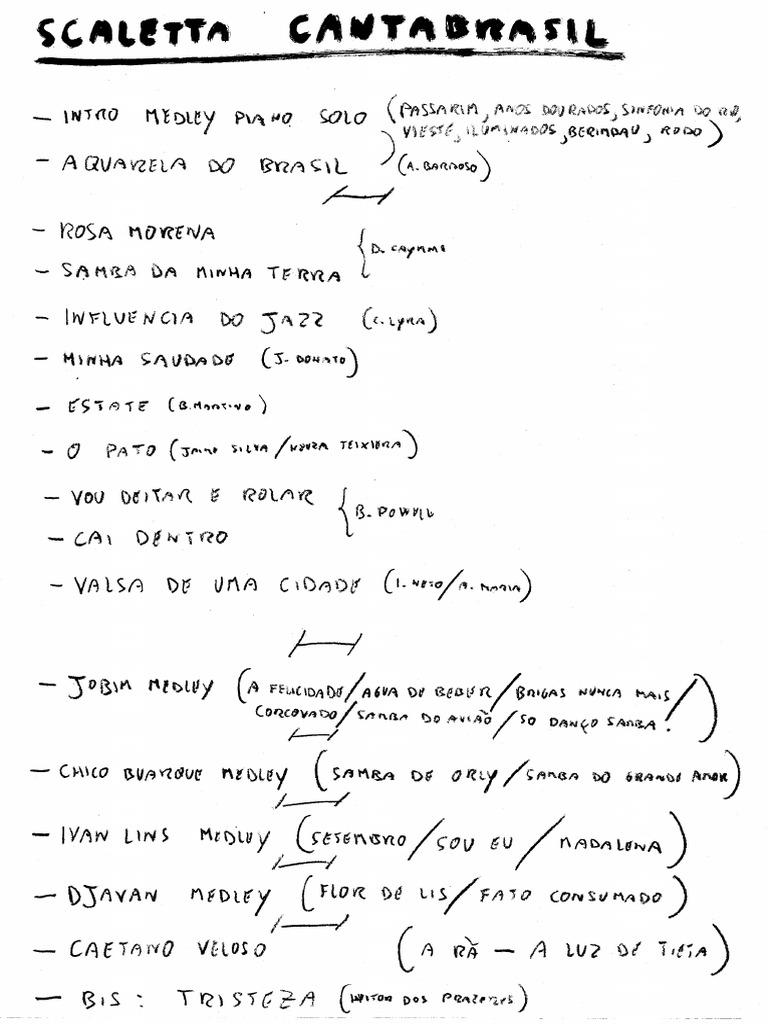 SCALETTA CANTABRASIL
- INTRO MEDLEY PIANO SOLO (PASSARIM, ANOS DOURADOS, SINFONIA DO RIO,
VIESTE, ILUMINADOS, BERIMBAU, RODO)
- AQUARELA DO BRASIL (A. BARROSO)
- ROSA MORENA
D. CAYMMI
- SAMBA DA MINHA TERRA
- INFLUENCIA DO JAZZ (C. LYRA)
- MINHA SAUDADE (J. DONATO)
- ESTATE (B. MARTINO)
- O PATO (JAIME SILVA/NEUZA TEIXEIRA)
- VOU DEITAR E ROLAR
B. POWELL
- CAI DENTRO
- VALSA DE UMA CIDADE (I. NETO/A. MARIA)
- JOBIM MEDLEY (A FELICIDADE/AGUA DE BEBER/BRIGAS NUNCA MAIS/
CORCOVADO/SAMBA DO AVIÃO/SO DANÇO SAMBA!)
- CHICO BUARQUE MEDLEY (SAMBA DE ORLY/SAMBA DO GRANDE AMOR)
- IVAN LINS MEDLEY (SETEMBRO/SOU EU/MADALENA)
- DJAVAN MEDLEY (FLOR DE LIS/FATO CONSUMADO)
- CAETANO VELOSO (A RÃ - A LUZ DE TIETA)
- BIS: TRISTEZA (HEITOR DOS PRAZERES)